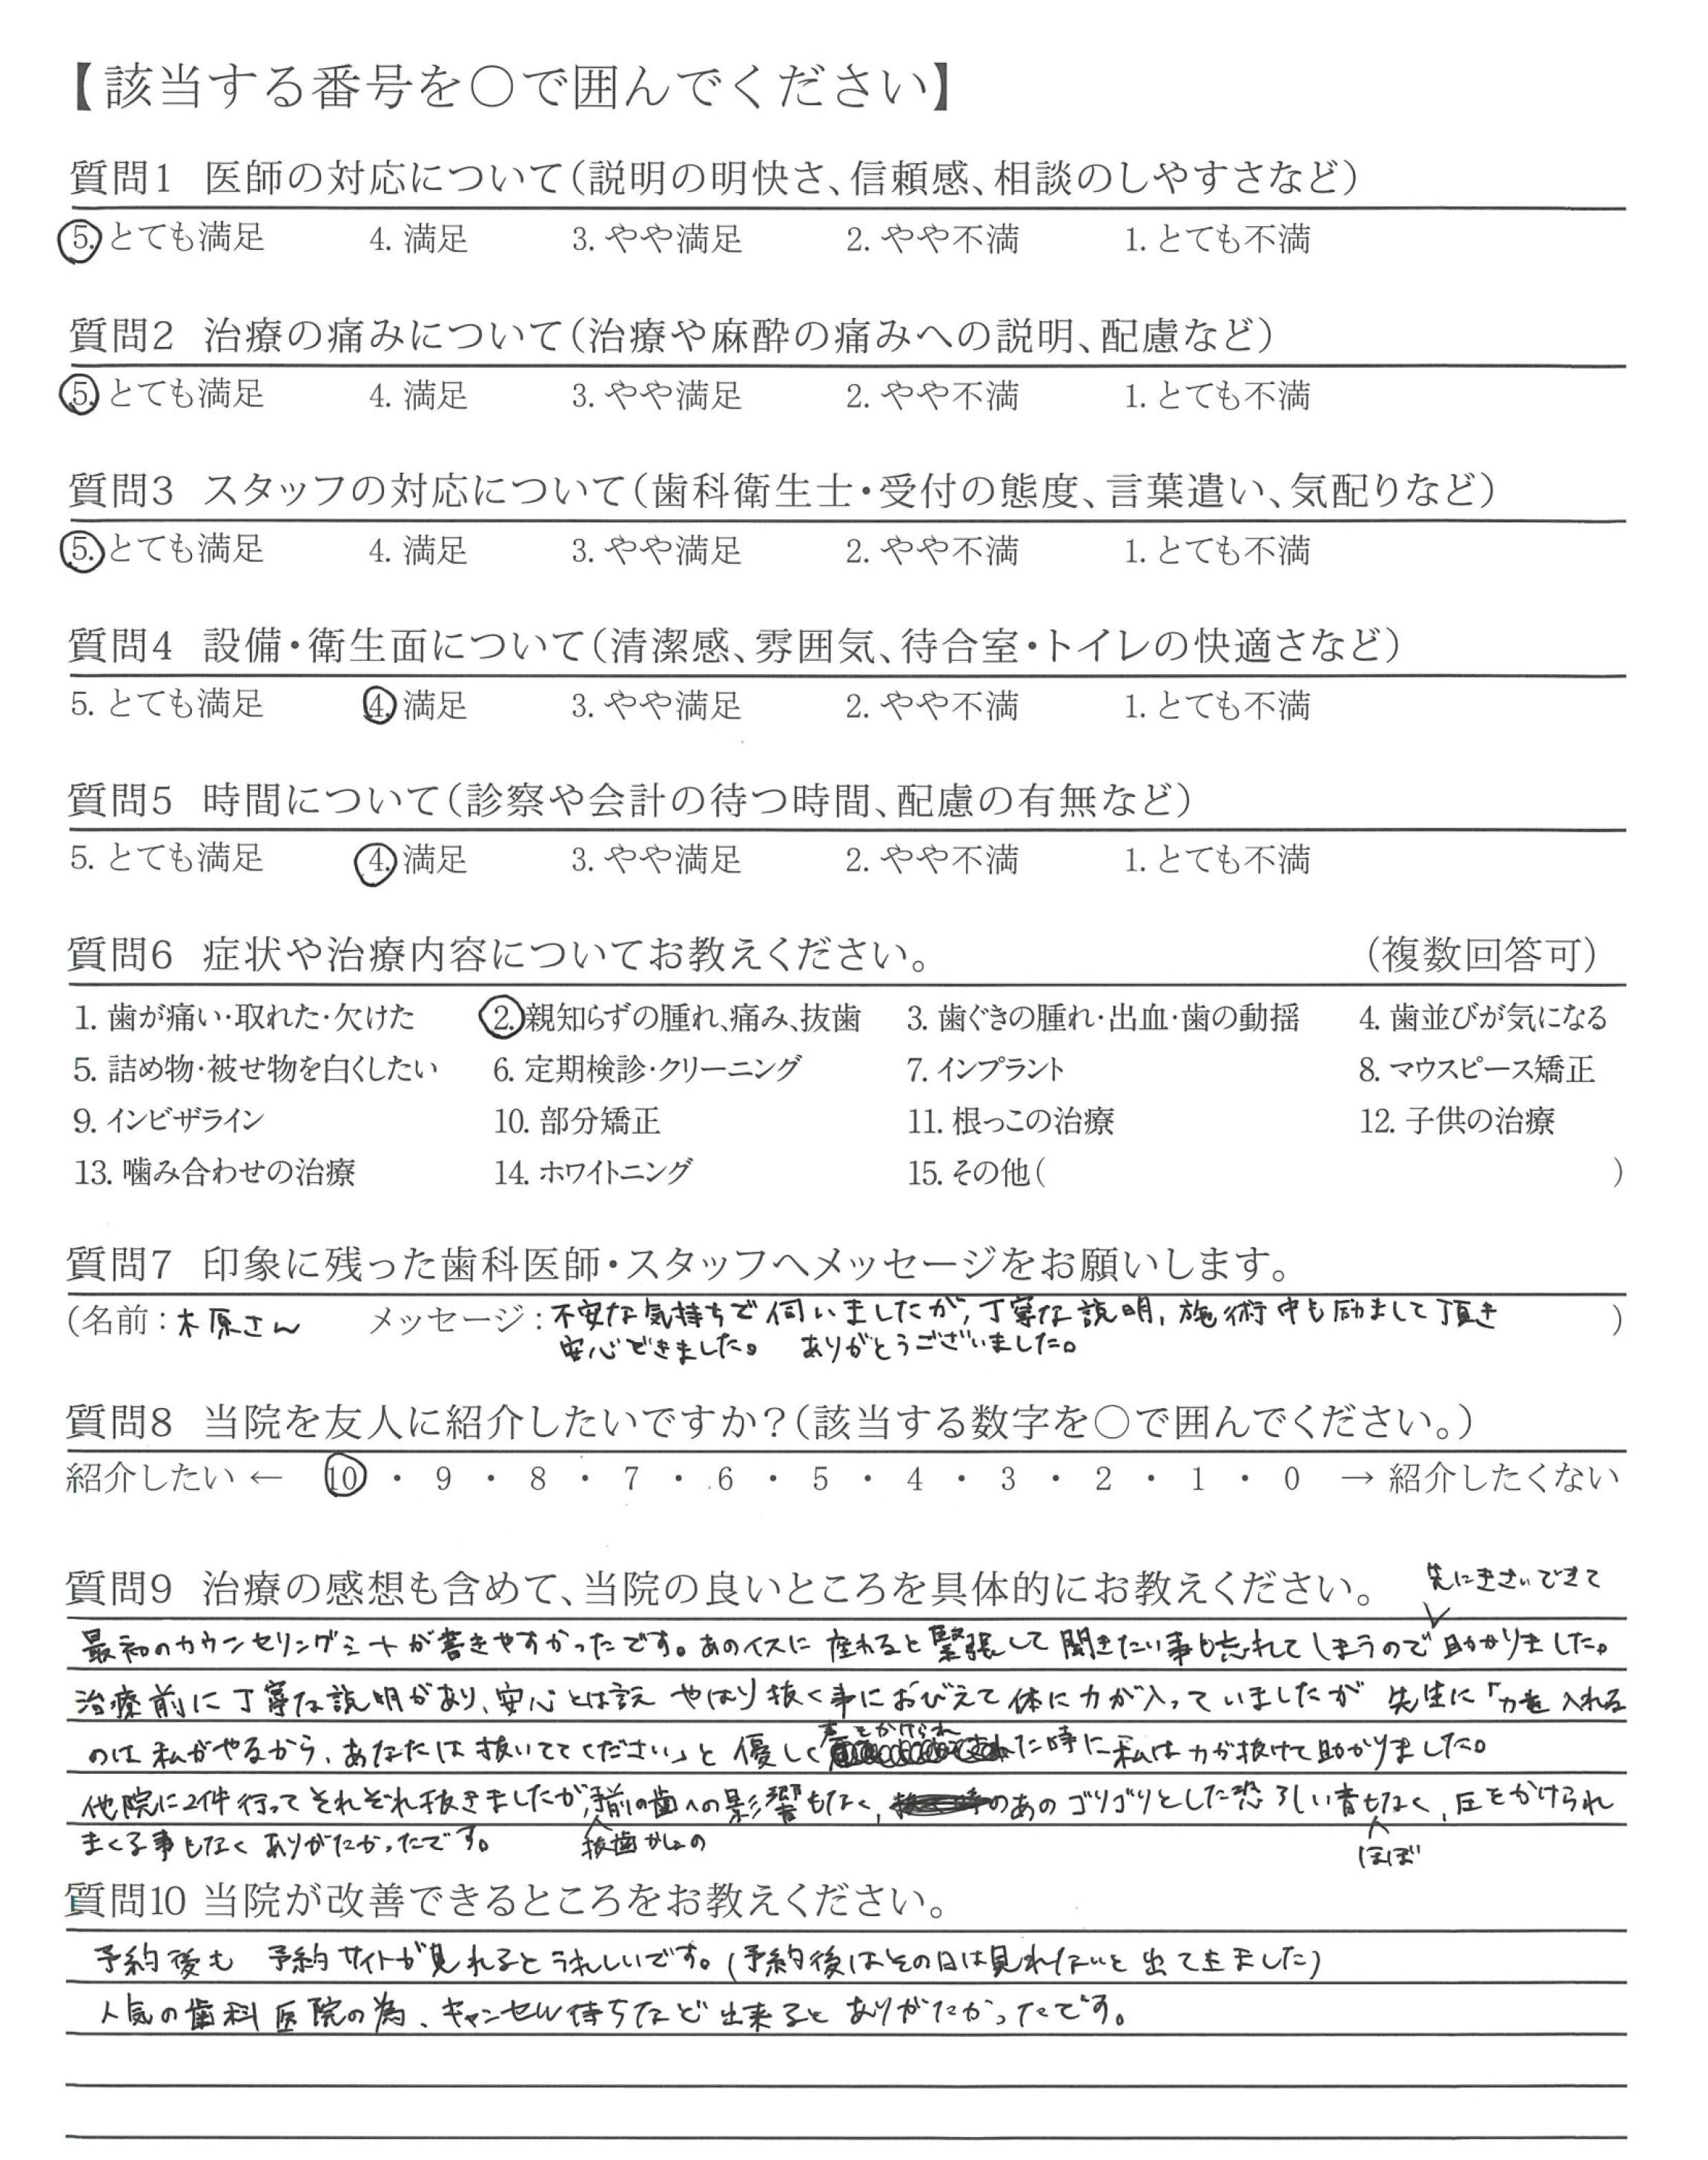 【該当する番号を〇で囲んでください】
質問1 医師の対応について(説明の明快さ、信頼感、相談のしやすさなど)
5. とても満足 4. 満足 3. やや満足 2. やや不満 1. とても不満
質問2 治療の痛みについて(治療や麻酔の痛みへの説明、配慮など)
5. とても満足 4. 満足 3. やや満足 2. やや不満 1. とても不満
質問3 スタッフの対応について(歯科衛生士・受付の態度、言葉遣い、気配りなど)
5. とても満足 4. 満足 3. やや満足 2. やや不満 1. とても不満
質問4 設備・衛生面について(清潔感、雰囲気、待合室・トイレの快適さなど)
5. とても満足 4. 満足 3. やや満足 2. やや不満 1. とても不満
質問5 時間について(診察や会計の待つ時間、配慮の有無など)
5. とても満足 4. 満足 3. やや満足 2. やや不満 1. とても不満
質問6 症状や治療内容についてお教えください。 (複数回答可)
1. 歯が痛い・取れた・欠けた 2. 親知らずの腫れ、痛み、抜歯 3. 歯ぐきの腫れ・出血・歯の動揺 4. 歯並びが気になる
5. 詰め物・被せ物を白くしたい 6. 定期検診・クリーニング 7. インプラント 8. マウスピース矯正
9. インビザライン 10. 部分矯正 11. 根っこの治療 12. 子供の治療
13. 噛み合わせの治療 14. ホワイトニング 15. その他( )
質問7 印象に残った歯科医師・スタッフへメッセージをお願いします。
(名前:木原さん メッセージ:不安な気持ちで伺いましたが、丁寧な説明、施術中も励まして頂き )
安心できました。 ありがとうございました。
質問8 当院を友人に紹介したいですか?(該当する数字を〇で囲んでください。)
紹介したい ← 10 ・ 9 ・ 8 ・ 7 ・ 6 ・ 5 ・ 4 ・ 3 ・ 2 ・ 1 ・ 0 → 紹介したくない
質問9 治療の感想も含めて、当院の良いところを具体的にお教えください。
先にきさいできて
最初のカウンセリングシートが書きやすかったです。あのイスに座れると緊張して聞きたい事も忘れてしまうので助かりました。
治療前に丁寧な説明があり、安心とは言え やはり抜く事におびえて体に力が入っていましたが 先生に「力を入れる
声をかけられ
のは私がやるから、あなたは抜いててください」と優しく た時に 私は力が抜けて助かりました。
他院に2件行ってそれぞれ抜きましたが、手前の歯への影響もなく、 のあのゴリゴリとした恐ろしい音もなく、圧をかけられ
まくる事もなくありがたかったです。 抜歯かしょの ほぼ
質問10 当院が改善できるところをお教えください。
予約後も 予約サイトが見れるとうれしいです。(予約後はその日は見れないと出てきました)
人気の歯科医院の為、キャンセル待ちなど出来るとありがたかったです。